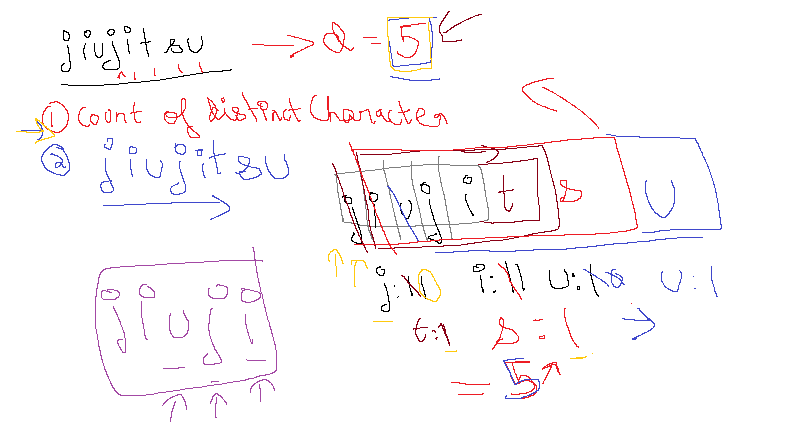 jiujitsu → d = 5
① count of distinct Character
② jiujitsu
j i u j i t s u
j: i:11 u:10 u:1
t:1 s:1
= 5
j i u j i